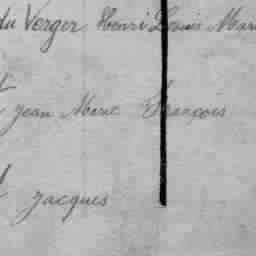 du Verger Henri Louis Mari
Jean Marie François
Jacques